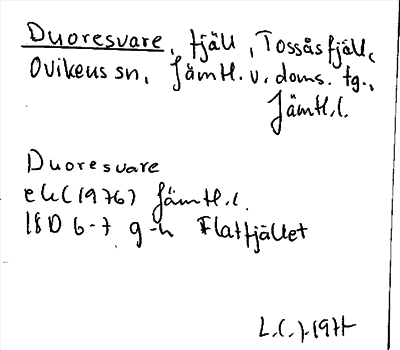 Duoresvare, fjäll, Tossåsfjäll,
Ovikens sn, Jämtl. v. doms. tg.,
Jämtl.l.
Duoresvare
ek (1976) Jämtl.l.
18D 6-7 g-h Flatfjället
L.C.J. 1977